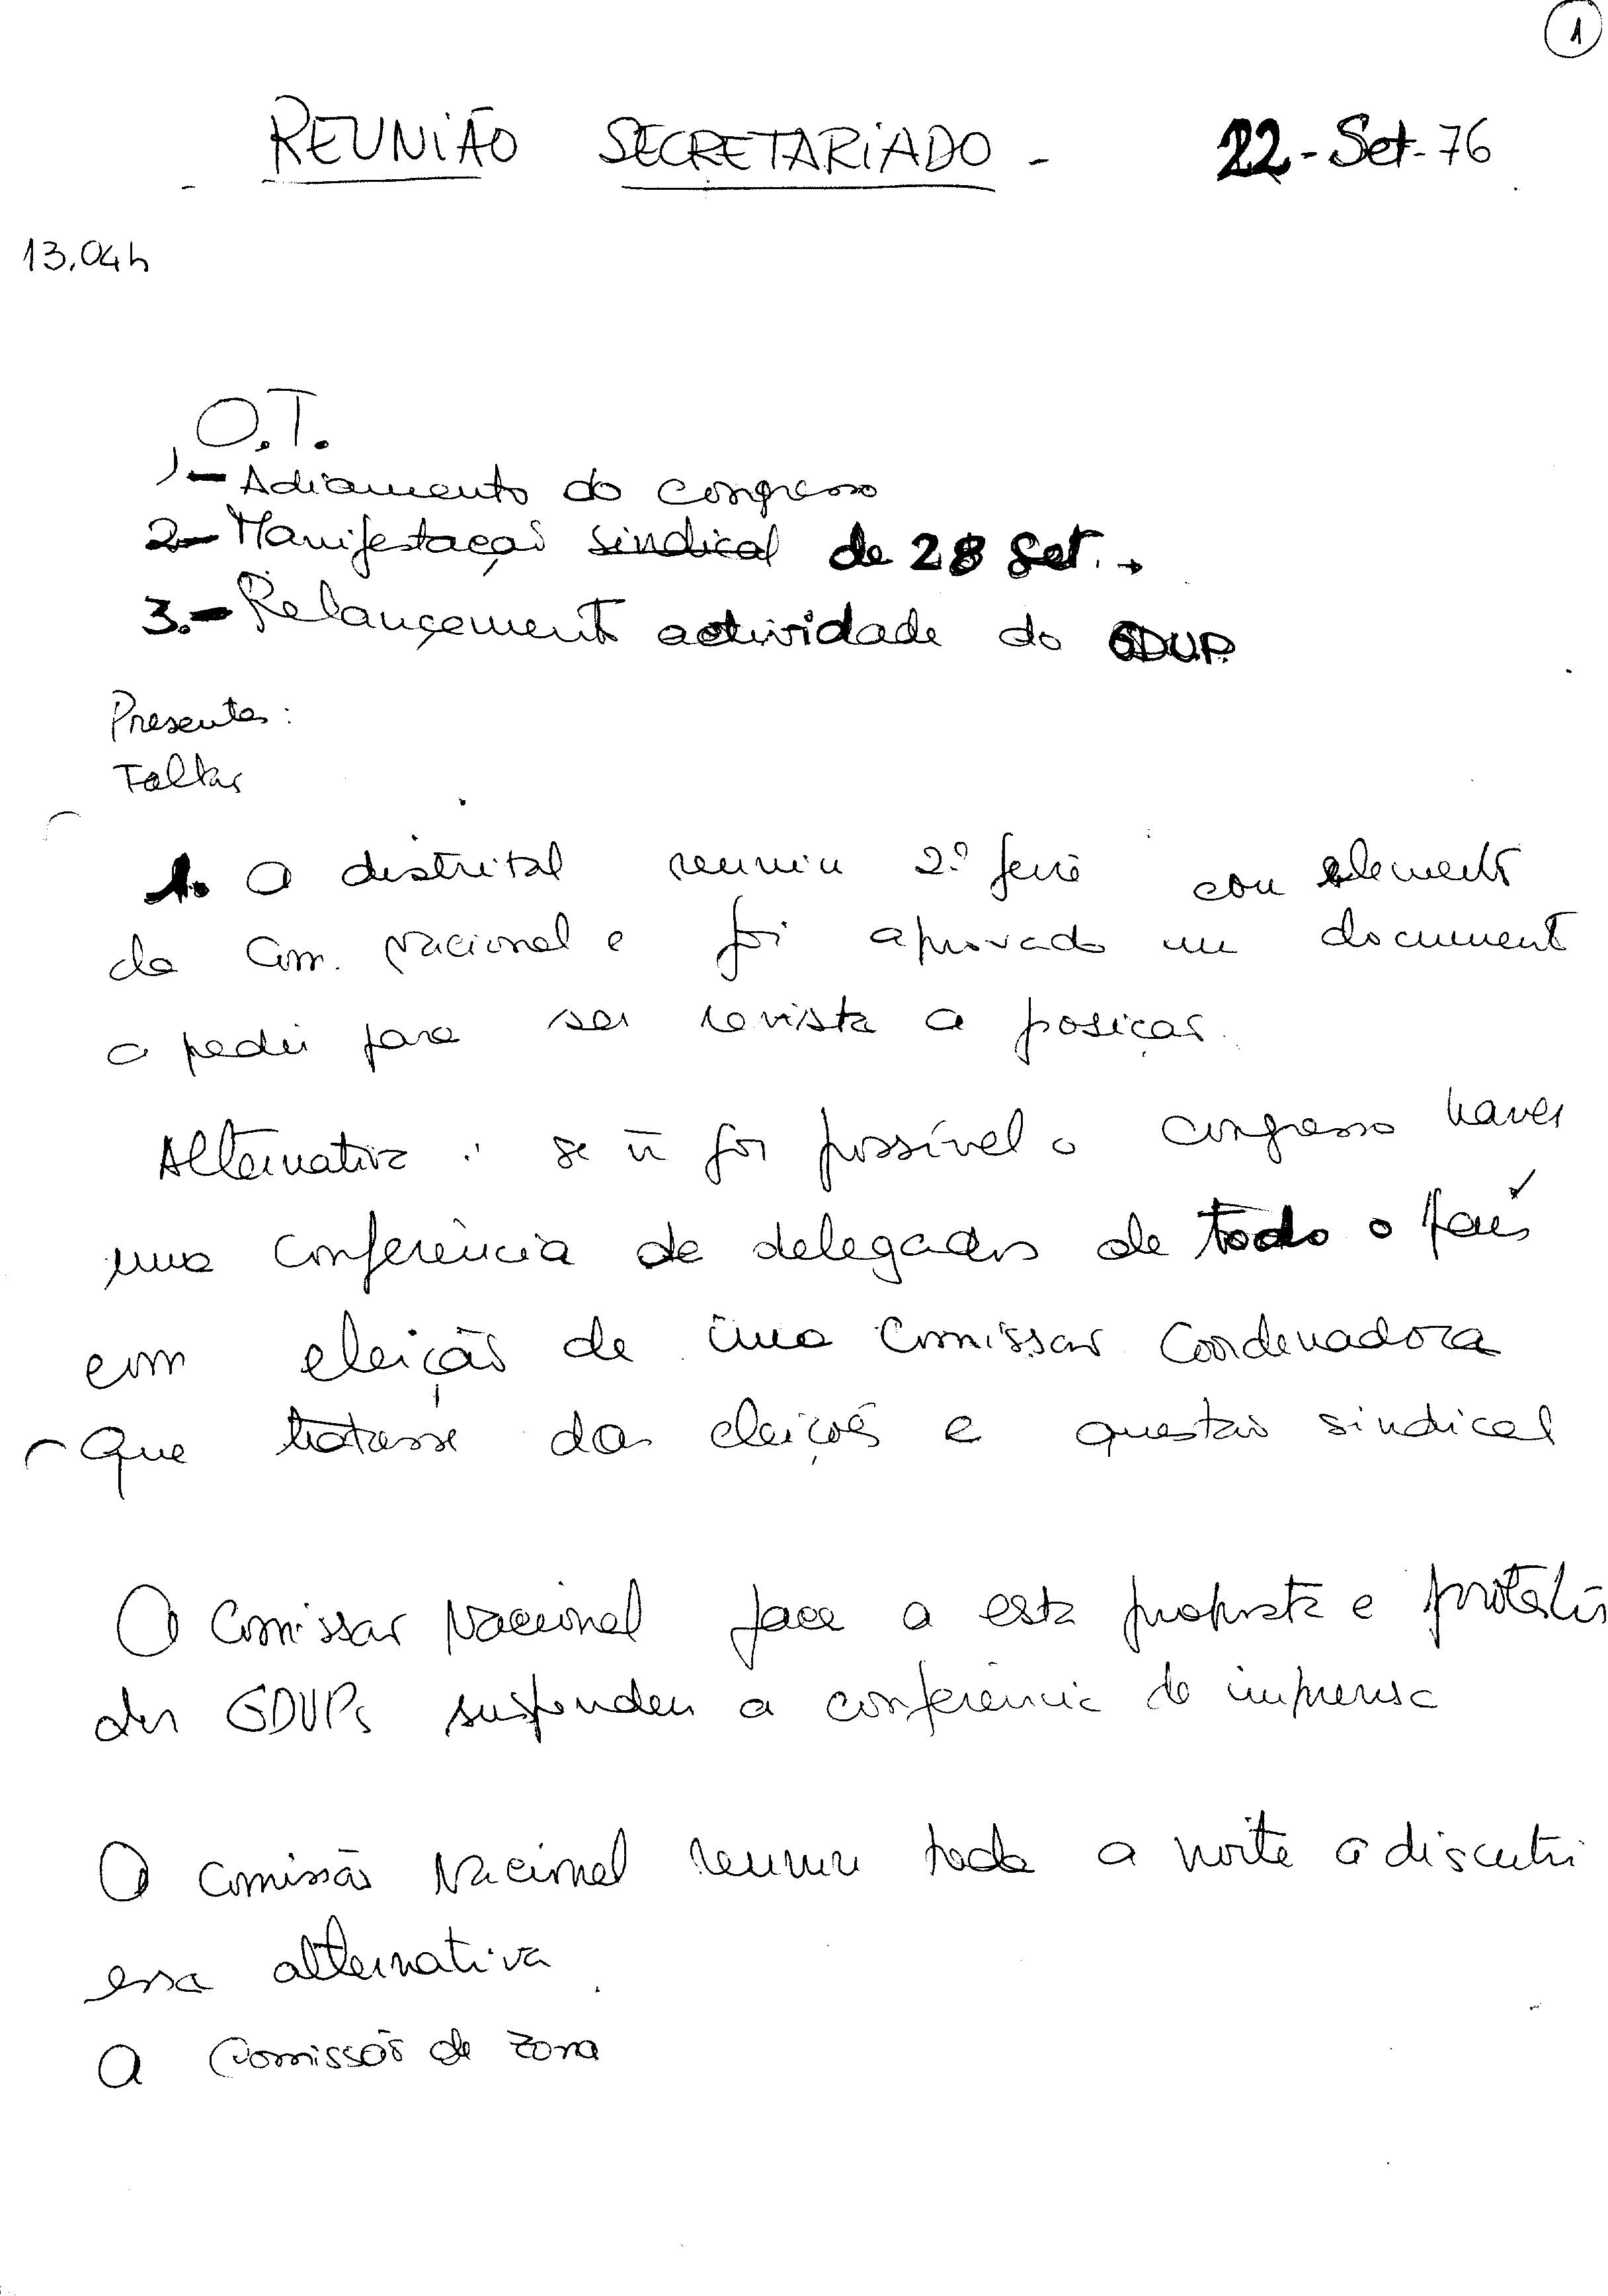 1
REUNIÃO SECRETARIADO - 22-Set-76
13.04h
O.T.
1- Adiamento do congresso
2- Manifestação sindical de 28 Set. →
3.- Relançamento actividade do GDUP.
Presentes:
Faltas
1. A distrital reuniu 2ª feira com elementos
da Com. Nacional e foi aprovado um documento
a pedir para ser revista a posição.
Alternativa: se ñ for possível o congresso haver
uma conferência de delegados de todo o país
com eleição de uma Comissão Coordenadora
que tratasse das eleições e questão sindical
A Comissão Nacional face a esta proposta e protestos
dos GDUPs suspendeu a conferência de imprensa
A Comissão Nacional reuniu toda a noite a discutir
essa alternativa
A Comissão de zona